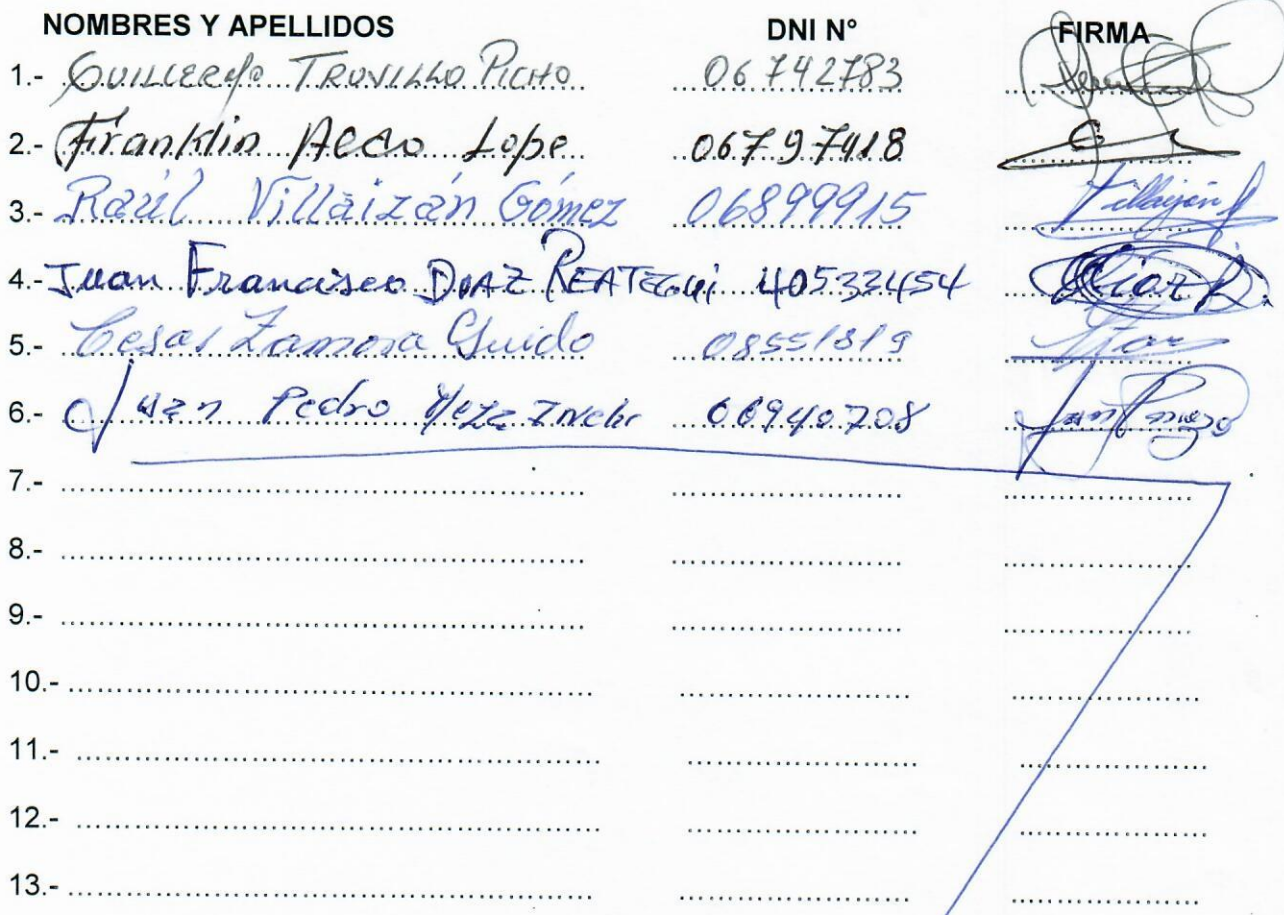 NOMBRES Y APELLIDOS DNI N° FIRMA
1.- GUILLERMO TRUVILLO PICHO 06742783
2.- Franklin Acco Lope 06797418
3.- Raúl Villaizán Gómez 06899915
4.- Juan Francisco DIAZ REATEGUI 40533454 Diaz R.
5.- Cesar Zamora Guido 08551819
6.- Juan Pedro 06940708
7.-
8.-
9.-
10.-
11.-
12.-
13.-